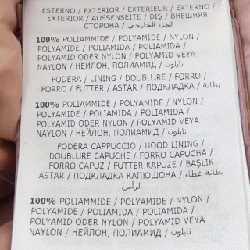 ESTERNO / EXTERIOR / EXTERIEUR / EXTERNO /
EXTERIOR / AUSSENSEITE / DIS / ВНЕШНЯЯ
СТОРОНА /
100% POLIAMMIDE / POLYAMIDE / NYLON /
POLYAMIDE / POLIAMIDA / POLIAMIDA /
POLYAMID ODER NYLON / POLYAMID VEYA
NAYLON / НЕЙЛОН, ПОЛИАМИД / نايلون
FODERA / LINING / DOUBLURE / FORRO /
FORRO / FUTTER / ASTAR / ПОДКЛАДКА / بطانة
100% POLIAMMIDE / POLYAMIDE / NYLON /
POLYAMIDE / POLIAMIDA / POLIAMIDA /
POLYAMID ODER NYLON / POLYAMID VEYA
NAYLON / НЕЙЛОН, ПОЛИАМИД / نايلون
FODERA CAPPUCCIO / HOOD LINING /
DOUBLURE CAPUCHE / FORRO CAPUCHA /
FORRO CAPUZ / FUTTER KAPUZE / BAŞLIK
ASTARI / ПОДКЛАДКА КАПЮШОНА /
100% POLIAMMIDE / POLYAMIDE / NYLON /
POLYAMIDE / POLIAMIDA / POLIAMIDA /
POLYAMID ODER NYLON / POLYAMID VEYA
NAYLON / НЕЙЛОН, ПОЛИАМИД / نايلون